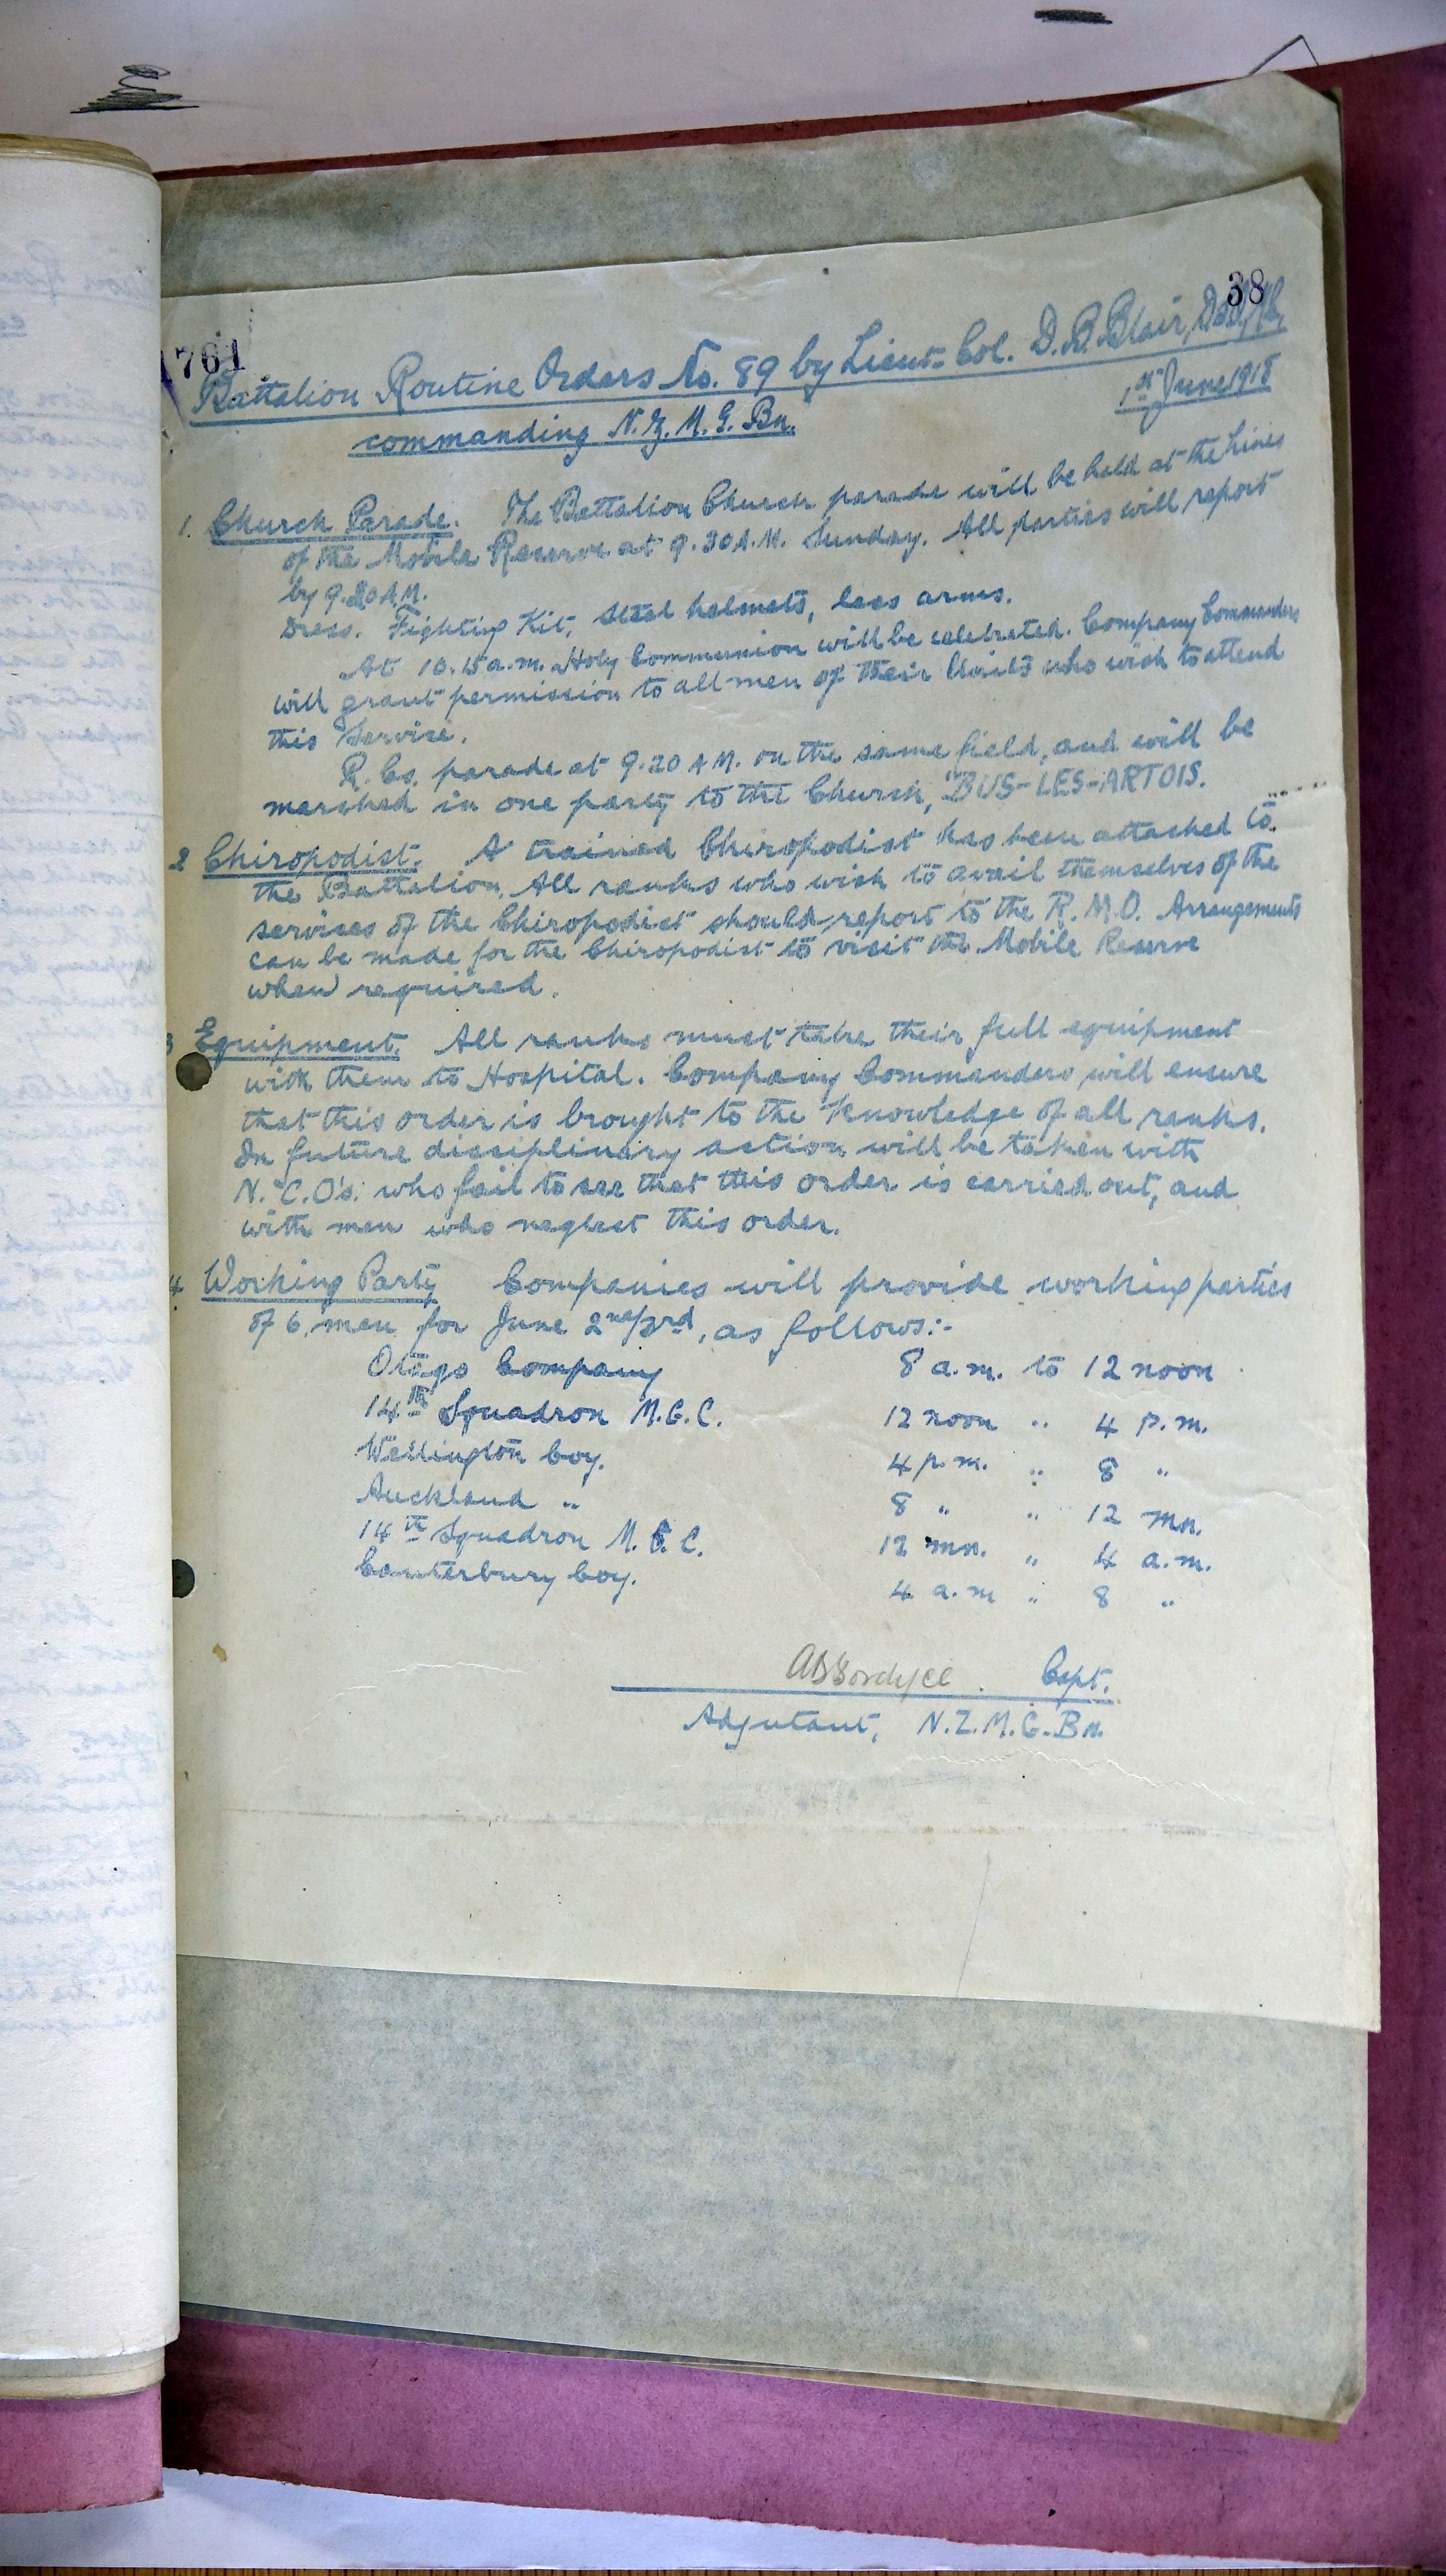 38
1761
Battalion Routine Orders No. 89 by Lieut. Col. D. B. Blair,
1st June 1918
commanding N.Z. M. G. Bn.
1. Church Parade. The Battalion Church parade will be held at the Lines
of the Mobile Reserve at 9.30 A.M. Sunday. All parties will report
by 9.20 A.M.
Dress. Fighting Kit, steel helmets, less arms.
At 10.15 a.m. Holy Communion will be celebrated. Company Commanders
will grant permission to all men of their Units who wish to attend
this Service.
R. Cs. parade at 9.20 A M. on the same field, and will be
marched in one party to the Church, BUS-LES-ARTOIS.
2 Chiropodist. A trained Chiropodist has been attached to
the Battalion. All ranks who wish to avail themselves of the
services of the Chiropodist should report to the R. M. O. Arrangements
can be made for the Chiropodist to visit the Mobile Reserve
when required.
3 Equipment. All ranks must take their full equipment
with them to Hospital. Company Commanders will ensure
that this order is brought to the knowledge of all ranks.
In future disciplinary action will be taken with
N. C. O's. who fail to see that this order is carried out, and
with men who neglect this order.
4 Working Party Companies will provide working parties
of 6 men for June 2nd/3rd, as follows:-
Otago Company 8 a.m. to 12 noon
14th Squadron M.G.C. 12 noon .. 4 p.m.
Wellington Coy. 4 p.m. .. 8 ..
Auckland .. 8 .. .. 12 mn.
14th Squadron M. G. C. 12 mn. .. 4 a.m.
Canterbury Coy. 4 a.m .. 8 ..
Capt.
Adjutant, N.Z.M.G.Bn.